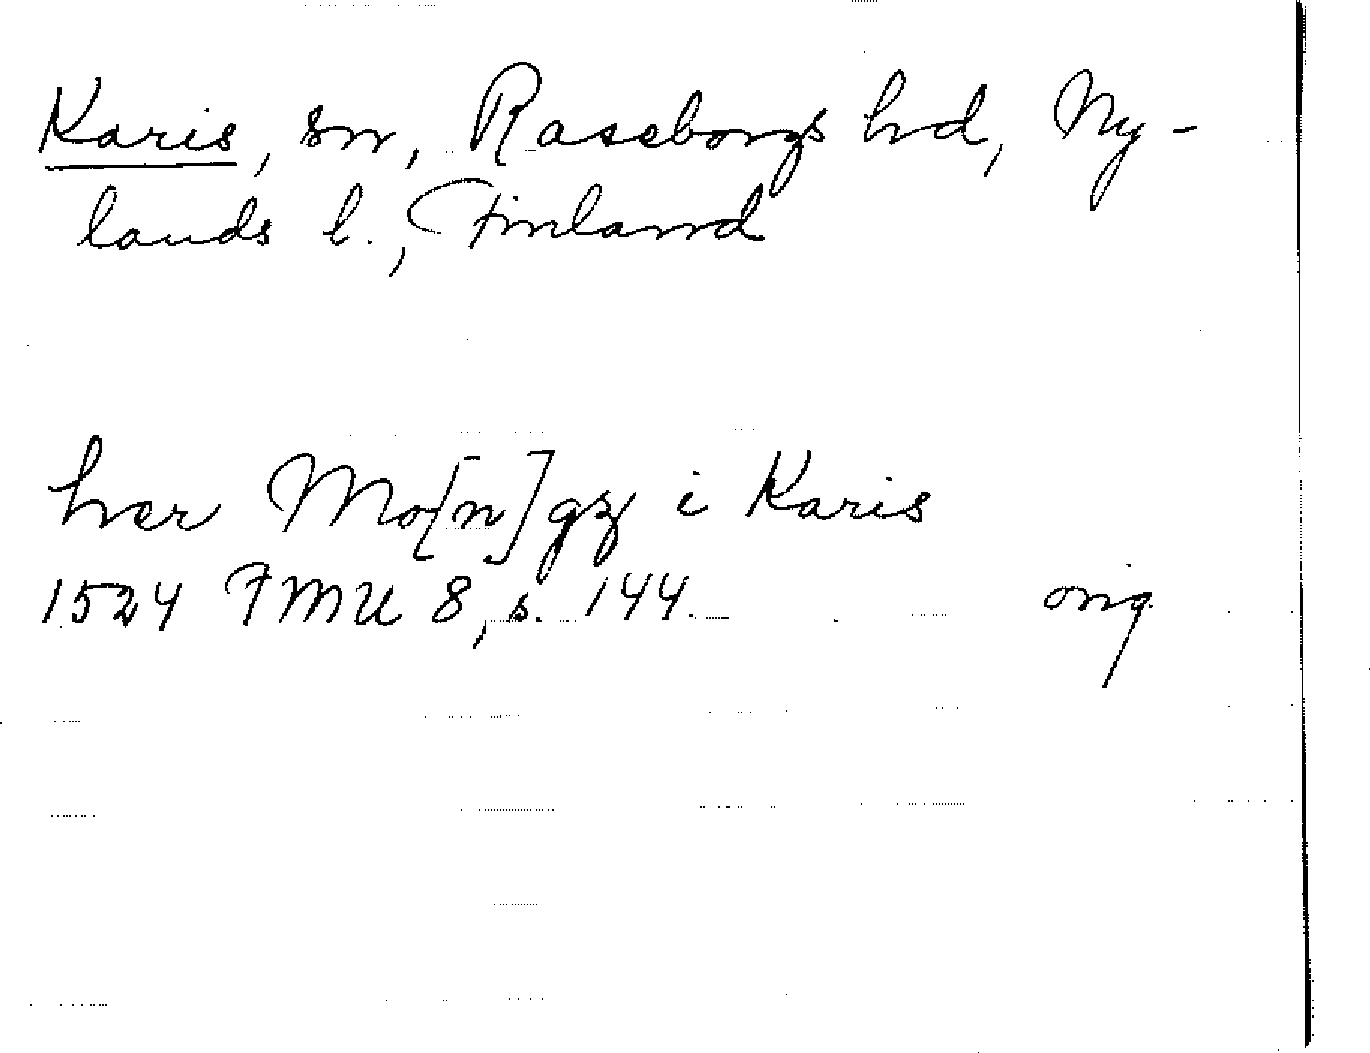 Karis, sn, Raseborgs hd, Ny-
lands l., Finland
her Mo[n]gz i Karis
1524 FMU 8, s. 144. orig.